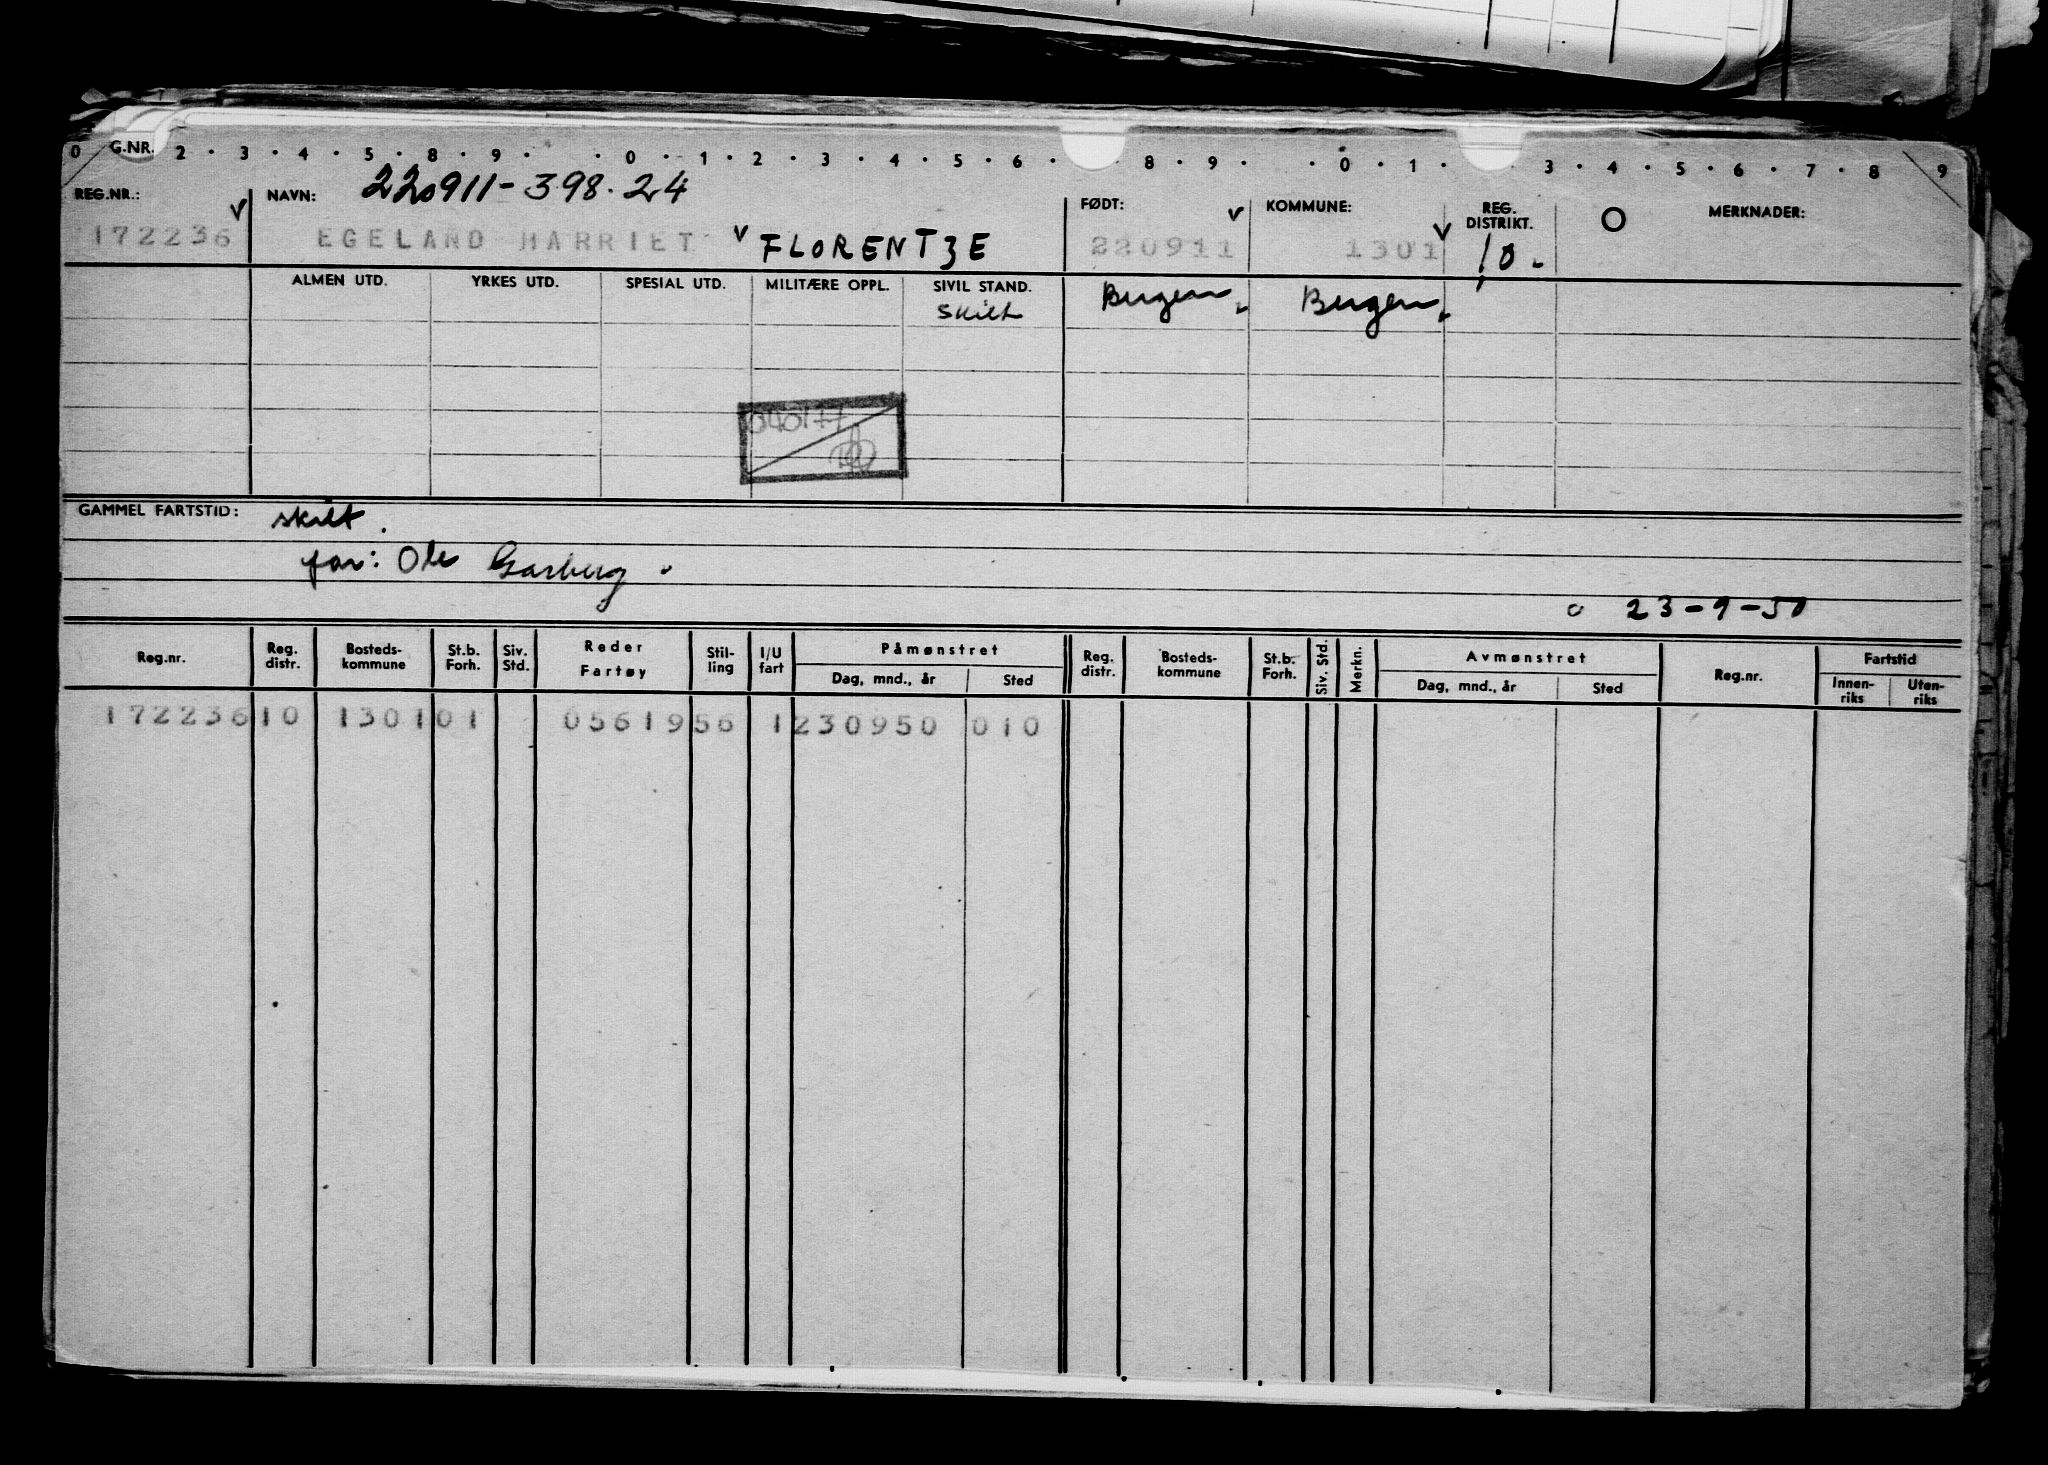 0 G.NR. 2 · 3 · 4 · 5 · 8 · 9 · · 0 · 1 · 2 · 3 · 4 · 5 · 6 · 8 · 9 · · 0 · 1 · 3 · 4 · 5 · 6 · 7 · 8 9
REG.NR.: NAVN: 220911-398.24 FØDT: KOMMUNE: REG. DISTRIKT. O MERKNADER:
172236 EGELAND HARRIET FLORENTZE 220911 1301 10.
ALMEN UTD. YRKES UTD. SPESIAL UTD. MILITÆRE OPPL. SIVIL STAND. Bergen Bergen
skilt
040177
GAMMEL FARTSTID: skilt.
far: Ole Garberg.
23-9-50
Reg.nr. Reg. distr. Bosteds-kommune St.b. Forh. Siv. Std. Reder Fartøy Stil-ling I/U fart Påmønstret Reg. distr. Bosteds-kommune St.b. Forh. Siv. Std. Merkn. Avmønstret Reg.nr. Fartstid
Dag, mnd., år Sted Dag, mnd., år Sted Innen-riks Uten-riks
172236 10 1301 01 05619 56 1 230950 010